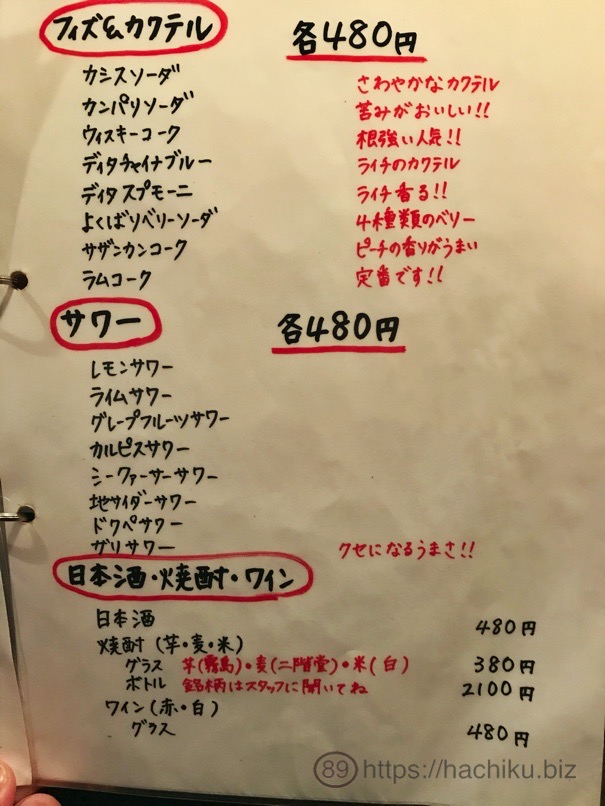 フィズ&カクテル 各480円
カシスソーダ さわやかなカクテル
カンパリソーダ 苦みがおいしい!!
ウィスキーコーク 根強い人気!!
ディタチャイナブルー ライチのカクテル
ディタスプモーニ ライチ香る!!
よくばりベリーソーダ 4種類のベリー
サザンカンコーク ピーチの香りがうまい
ラムコーク 定番です!!
サワー 各480円
レモンサワー
ライムサワー
グレープフルーツサワー
カルピスサワー
シークァーサーサワー
地サイダーサワー
ドクペサワー
ガリサワー クセになるうまさ!!
日本酒・焼酎・ワイン
日本酒 480円
焼酎(芋・麦・米)
グラス 芋(霧島)・麦(二階堂)・米(白) 380円
ボトル 銘柄はスタッフに聞いてね 2100円
ワイン(赤・白)
グラス 480円
89 https://hachiku.biz